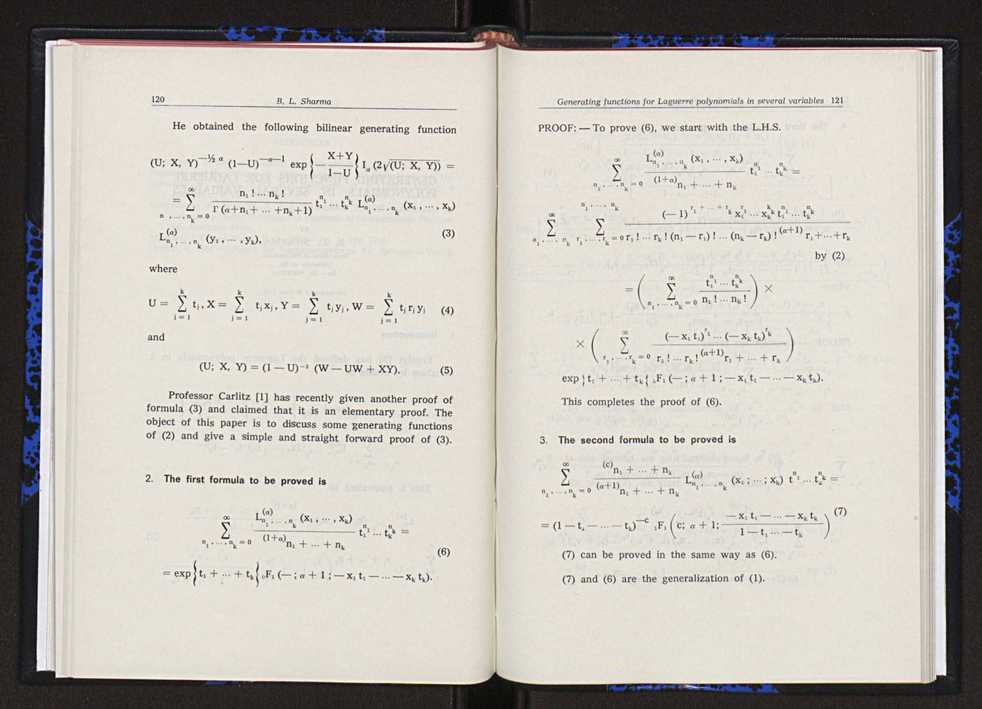 120 B. L. Sharma
He obtained the following bilinear generating function
(U; X, Y)^{-½ α} (1—U)^{-α-1} exp {- X+Y / 1—U} I_α (2√(U; X, Y)) =
= Σ_{n , ... , n_k = 0}^{∞} n_1 ! ... n_k ! / Γ (α+n_1+ ... +n_k+1) t_1^{n_1} ... t_k^{n_k} L_{n_1, ... , n_k}^{(α)} (x_1 , ... , x_k)
L_{n_1, ... , n_k}^{(α)} (y_1 , ... , y_k), (3)
where
U = Σ_{i = 1}^{k} t_j , X = Σ_{j = 1}^{k} t_j x_j , Y = Σ_{j = 1}^{k} t_j y_j , W = Σ_{j = 1}^{k} t_j r_i y_j (4)
and
(U; X, Y) = (1 — U)^{-2} (W — UW + XY). (5)
Professor Carlitz [1] has recently given another proof of
formula (3) and claimed that it is an elementary proof. The
object of this paper is to discuss some generating functions
of (2) and give a simple and straight forward proof of (3).
2. The first formula to be proved is
Σ_{n_1, ... , n_k = 0}^{∞} L_{n_1, ... , n_k}^{(α)} (x_1 , ... , x_k) / (1+α)_{n_1 + ... + n_k} t_1^{n_1} ... t_k^{n_k} =
(6)
= exp { t_1 + ... + t_k { ₀F₁ (— ; α + 1 ; — x_1 t_1 — ... — x_k t_k).
Generating functions for Laguerre polynomials in several variables 121
PROOF: — To prove (6), we start with the L.H.S.
Σ_{n_1, ... , n_k = 0}^{∞} L_{n_1, ... , n_k}^{(α)} (x_1 , ... , x_k) / (1+α)_{n_1 + ... + n_k} t_1^{n_1} ... t_k^{n_k} =
Σ_{n_1, ... , n_k}^{∞} Σ_{r_1, ... , r_k = 0}^{n_1, ... , n_k} (— 1)^{r_1 + ... + r_k} x_1^{r_1} ... x_k^{r_k} t_1^{n_1} ... t_k^{n_k} / r_1 ! ... r_k ! (n_1 — r_1) ! ... (n_k — r_k) ! (α+1)_{r_1+...+r_k}
by (2)
= ( Σ_{n_1, ... , n_k = 0}^{∞} t_1^{n_1} ... t_k^{n_k} / n_1 ! ... n_k ! ) ×
× ( Σ_{r_1, ... , r_k = 0}^{∞} (— x_1 t_1)^{r_1} ... (— x_k t_k)^{r_k} / r_1 ! ... r_k ! (α+1)_{r_1 + ... + r_k} )
exp { t_1 + ... + t_k { ₀F₁ (— ; α + 1 ; — x_1 t_1 — ... — x_k t_k).
This completes the proof of (6).
3. The second formula to be proved is
Σ_{n_1, ... , n_k = 0}^{∞} (c)_{n_1 + ... + n_k} / (α+1)_{n_1 + ... + n_k} L_{n_1, ... , n_k}^{(α)} (x_1 ; ... ; x_k) t^{n_1} ... t_k^{n_k} =
= (1 — t_1 — ... — t_k)^{-c} ₁F₁ ( c; α + 1; — x_1 t_1 — ... — x_k t_k / 1 — t_1 ... — t_k ) (7)
(7) can be proved in the same way as (6).
(7) and (6) are the generalization of (1).